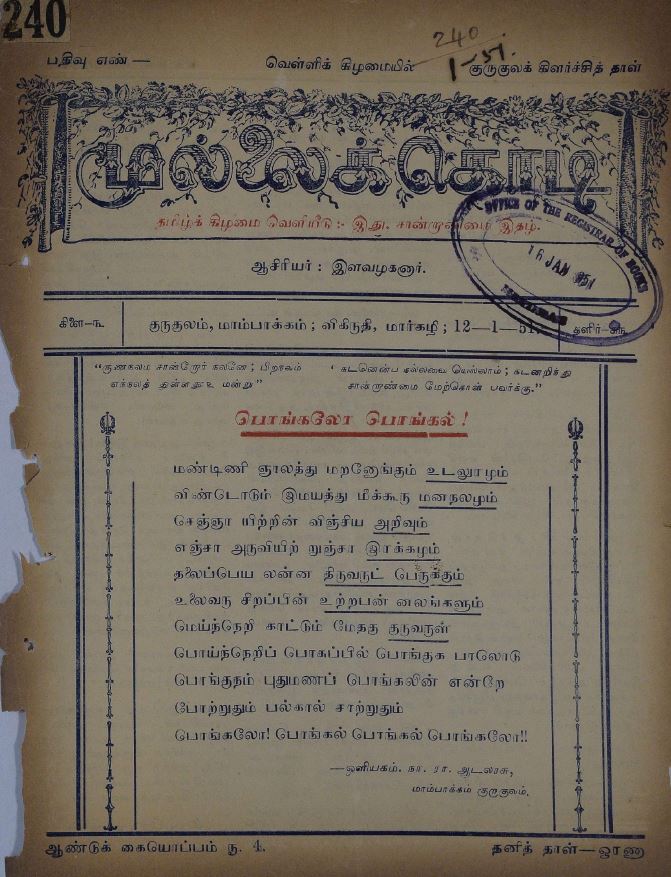 240
240
1-51.
பதிவு எண் — வெள்ளிக் கிழமையில் குருகுலக் கிளர்ச்சித் தாள்
முல்லைக்கொடி
தமிழ்க் கிழமை வெளியீடு :- இது, சான்றாண்மை இதழ்.
OFFICE OF THE REGISTRAR OF BOOKS
16 JAN 1951
ஆசிரியர் : இளவழகனார்.
கிளை-௩ குருகுலம், மாம்பாக்கம் ; விகிருதி, மார்கழி ; 12-1-51. தளிர்-
“குணநலம் சான்றோர் நலனே ; பிறநலம்
எந்நலத் துள்ளதூஉ மன்று”
‘ கடனென்ப நல்லவை யெல்லாம் ; கடனறிந்து
சான்றாண்மை மேற்கொள் பவர்க்கு.”
பொங்கலோ பொங்கல் !
மண்டிணி ஞாலத்து மறனோங்கும் உடலூழும்
விண்டொடும் இமயத்து மீக்கூரு மனநலமும்
செஞ்ஞா யிற்றின் விஞ்சிய அறிவும்
எஞ்சா அருவியிற் றுஞ்சா இரக்கமும்
தலைப்பெய லன்ன திருவருட் பெருக்கும்
உலைவரு சிறப்பின் உற்றபன் னலங்களும்
மெய்ந்நெறி காட்டும் மேதகு குருவருள்
பொய்ந்நெறிப் போகப்பில் பொங்குக பாலோடு
பொங்குநம் புதுமணப் பொங்கலின் என்றே
போற்றுதும் பல்கால் சாற்றுதும்
பொங்கலோ! பொங்கல் பொங்கல் பொங்கலோ!!
—ஒளியகம். நா. ரா. ஆடலரசு,
மாம்பாக்கம் குருகுலம்.
ஆண்டுக் கையொப்பம் ரூ. 4. தனித் தாள்—ஓரணா